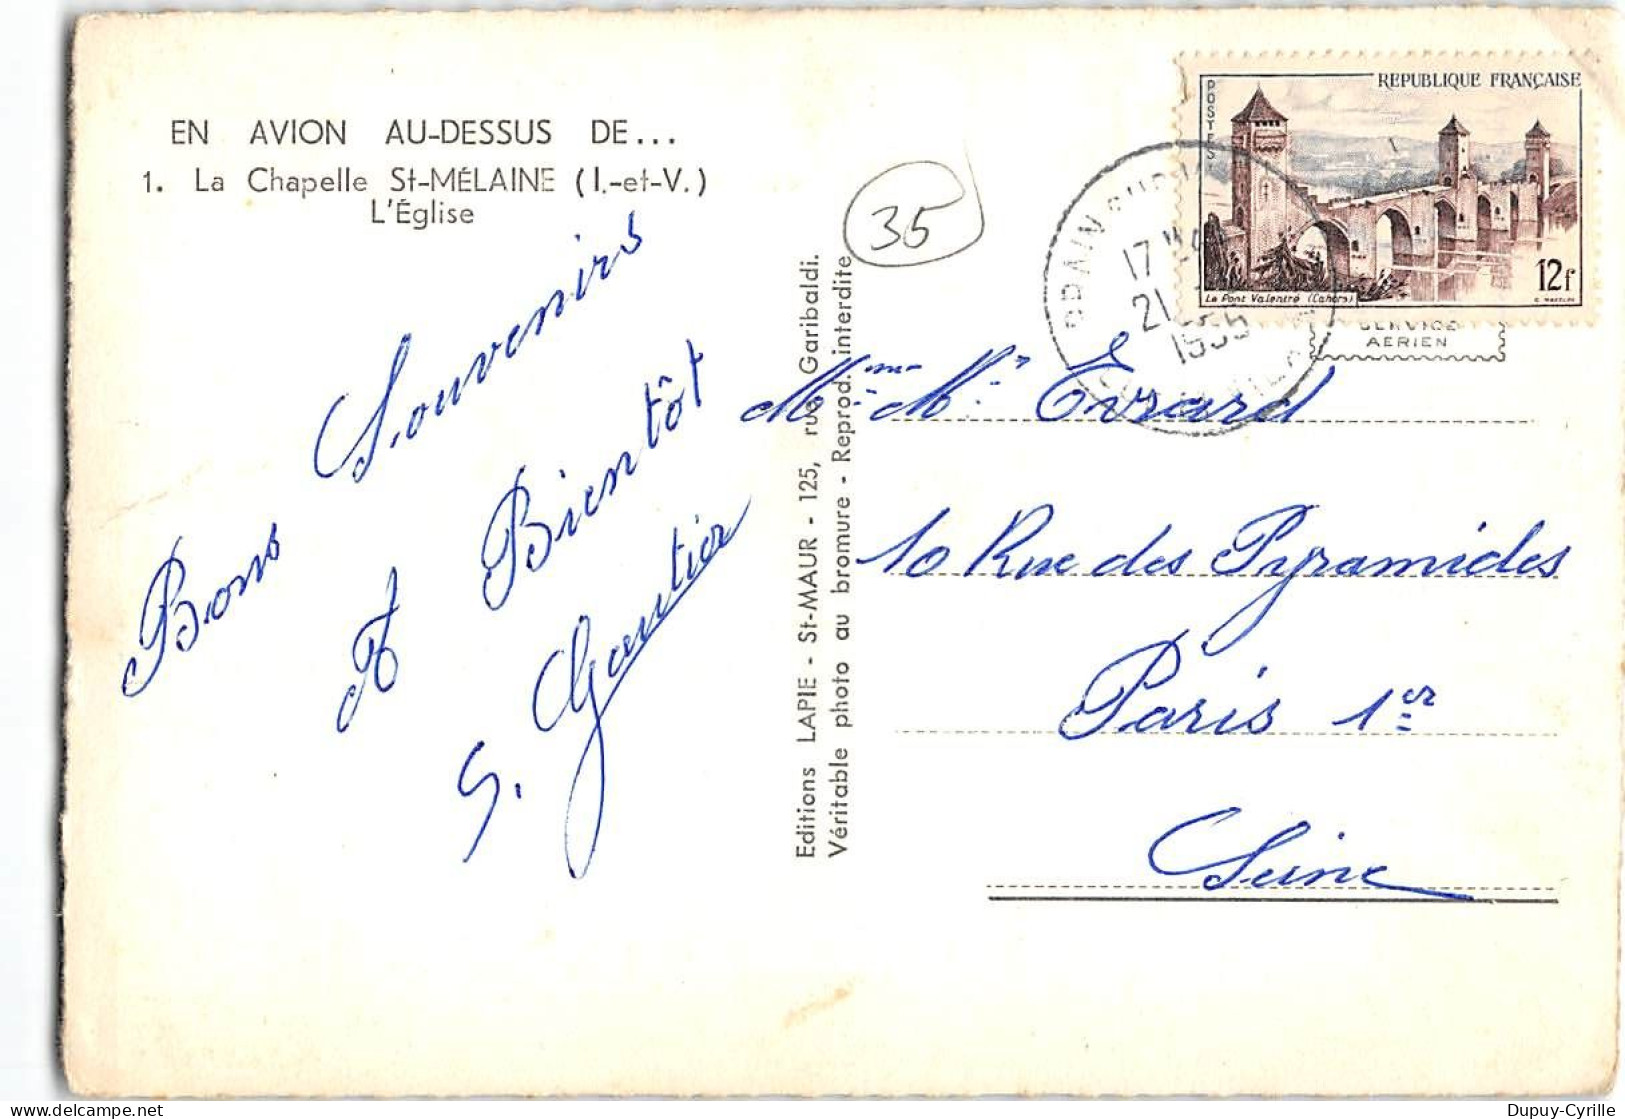 EN AVION AU-DESSUS DE...
1. La Chapelle St-MÉLAINE (I.-et-V.)
L'Église
Bons Souvenirs
A Bientôt
S. Gautier
Editions LAPIE - St-MAUR - 125, rue Garibaldi.
Véritable photo au bromure - Reprod. interdite
35
REPUBLIQUE FRANÇAISE
POSTES
12f
Le Pont Valentré (Cahors)
BRAIN SUR
17
21
1955
SERVICE
AERIEN
Mme Mr Evrard
10 Rue des Pyramides
Paris 1er
Seine
delcampe.net
Dupuy-Cyrille